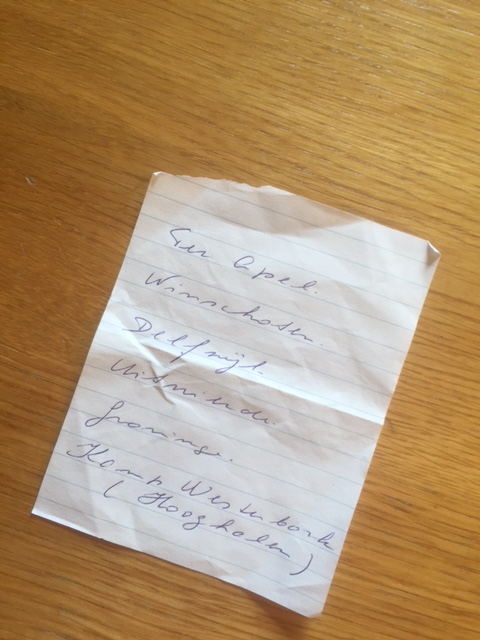 Ter Apel.
Winschoten.
Delfzijl.
Groninge.
Kamp Westerbork
( Hooghalen )